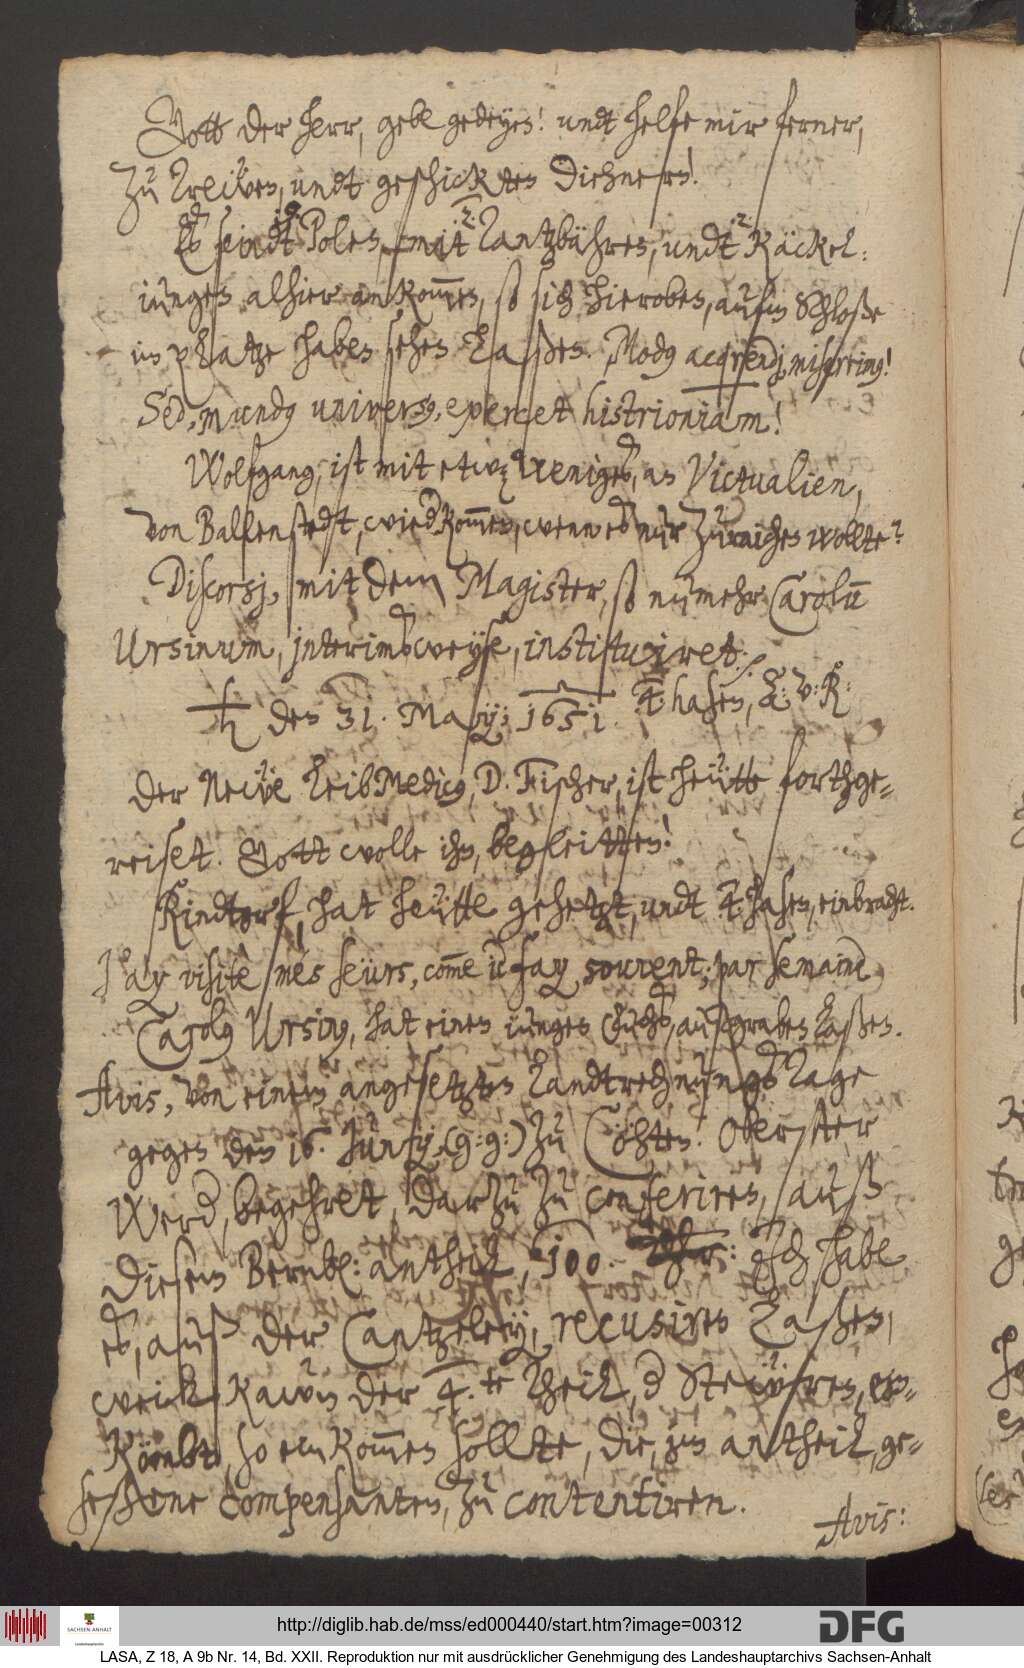 Gott der herr, gebe gedeyen! undt helfe mir ferner,
zu trewen, undt geschickten Diehnern!
Es seindt Polen, mit 2 Tantzbähren, undt 2 Räckel:
iungen alhier ankommen, so sich hieroben, aufm Schloße
im platze haben sehen laßen. Modus acquirendj, miserrimus!
Sed, mundus universus, exercet histrioniam!
Wolfgang, ist mit etwas weniges, an Victualien,
von Ballenstedt, wiederkommen, wenn es nur zuraichen wollte?
Discorsj, mit dem Magister, so numehr Carolum
Ursinum, jnterimsweyse, instituiret.
♄ den 31. May: 1651. 4 hasen, L: v: R:
Der Newe LeibMedicus, D. Fischer, ist heütte forthge-
reiset. Gott wolle ihn, begleitten!
Rindtorf, hat heütte gehetzt, undt 4 hasen, einbracht.
J'ay visitè mes seürs, comme je fay, souvent, par semaine
Carolus Ursinus, hat einen iungen Fuchß, außgraben laßen.
Avis, von einem angesetzten Landtrechnungs Tage
gegen den 16. Junij, (g: g:) zu Cöhten. Oberster
Werder, begehret, darzu zu conferiren, auß
diesem Bernb: antheil, 100 Thlr: Jch habe
es, auß der Cantzeley, recusiren laßen,
weil kaum der 4.te Theil, der Stewren, ein-
kömbt, so einkommen sollte, die, im antheil, ge-
seßene compensanten, zu contentiren.
Avis:
http://diglib.hab.de/mss/ed000440/start.htm?image=00312
SACHSEN-ANHALT
Landeshauptarchiv
DFG
LASA, Z 18, A 9b Nr. 14, Bd. XXII. Reproduktion nur mit ausdrücklicher Genehmigung des Landeshauptarchivs Sachsen-Anhalt